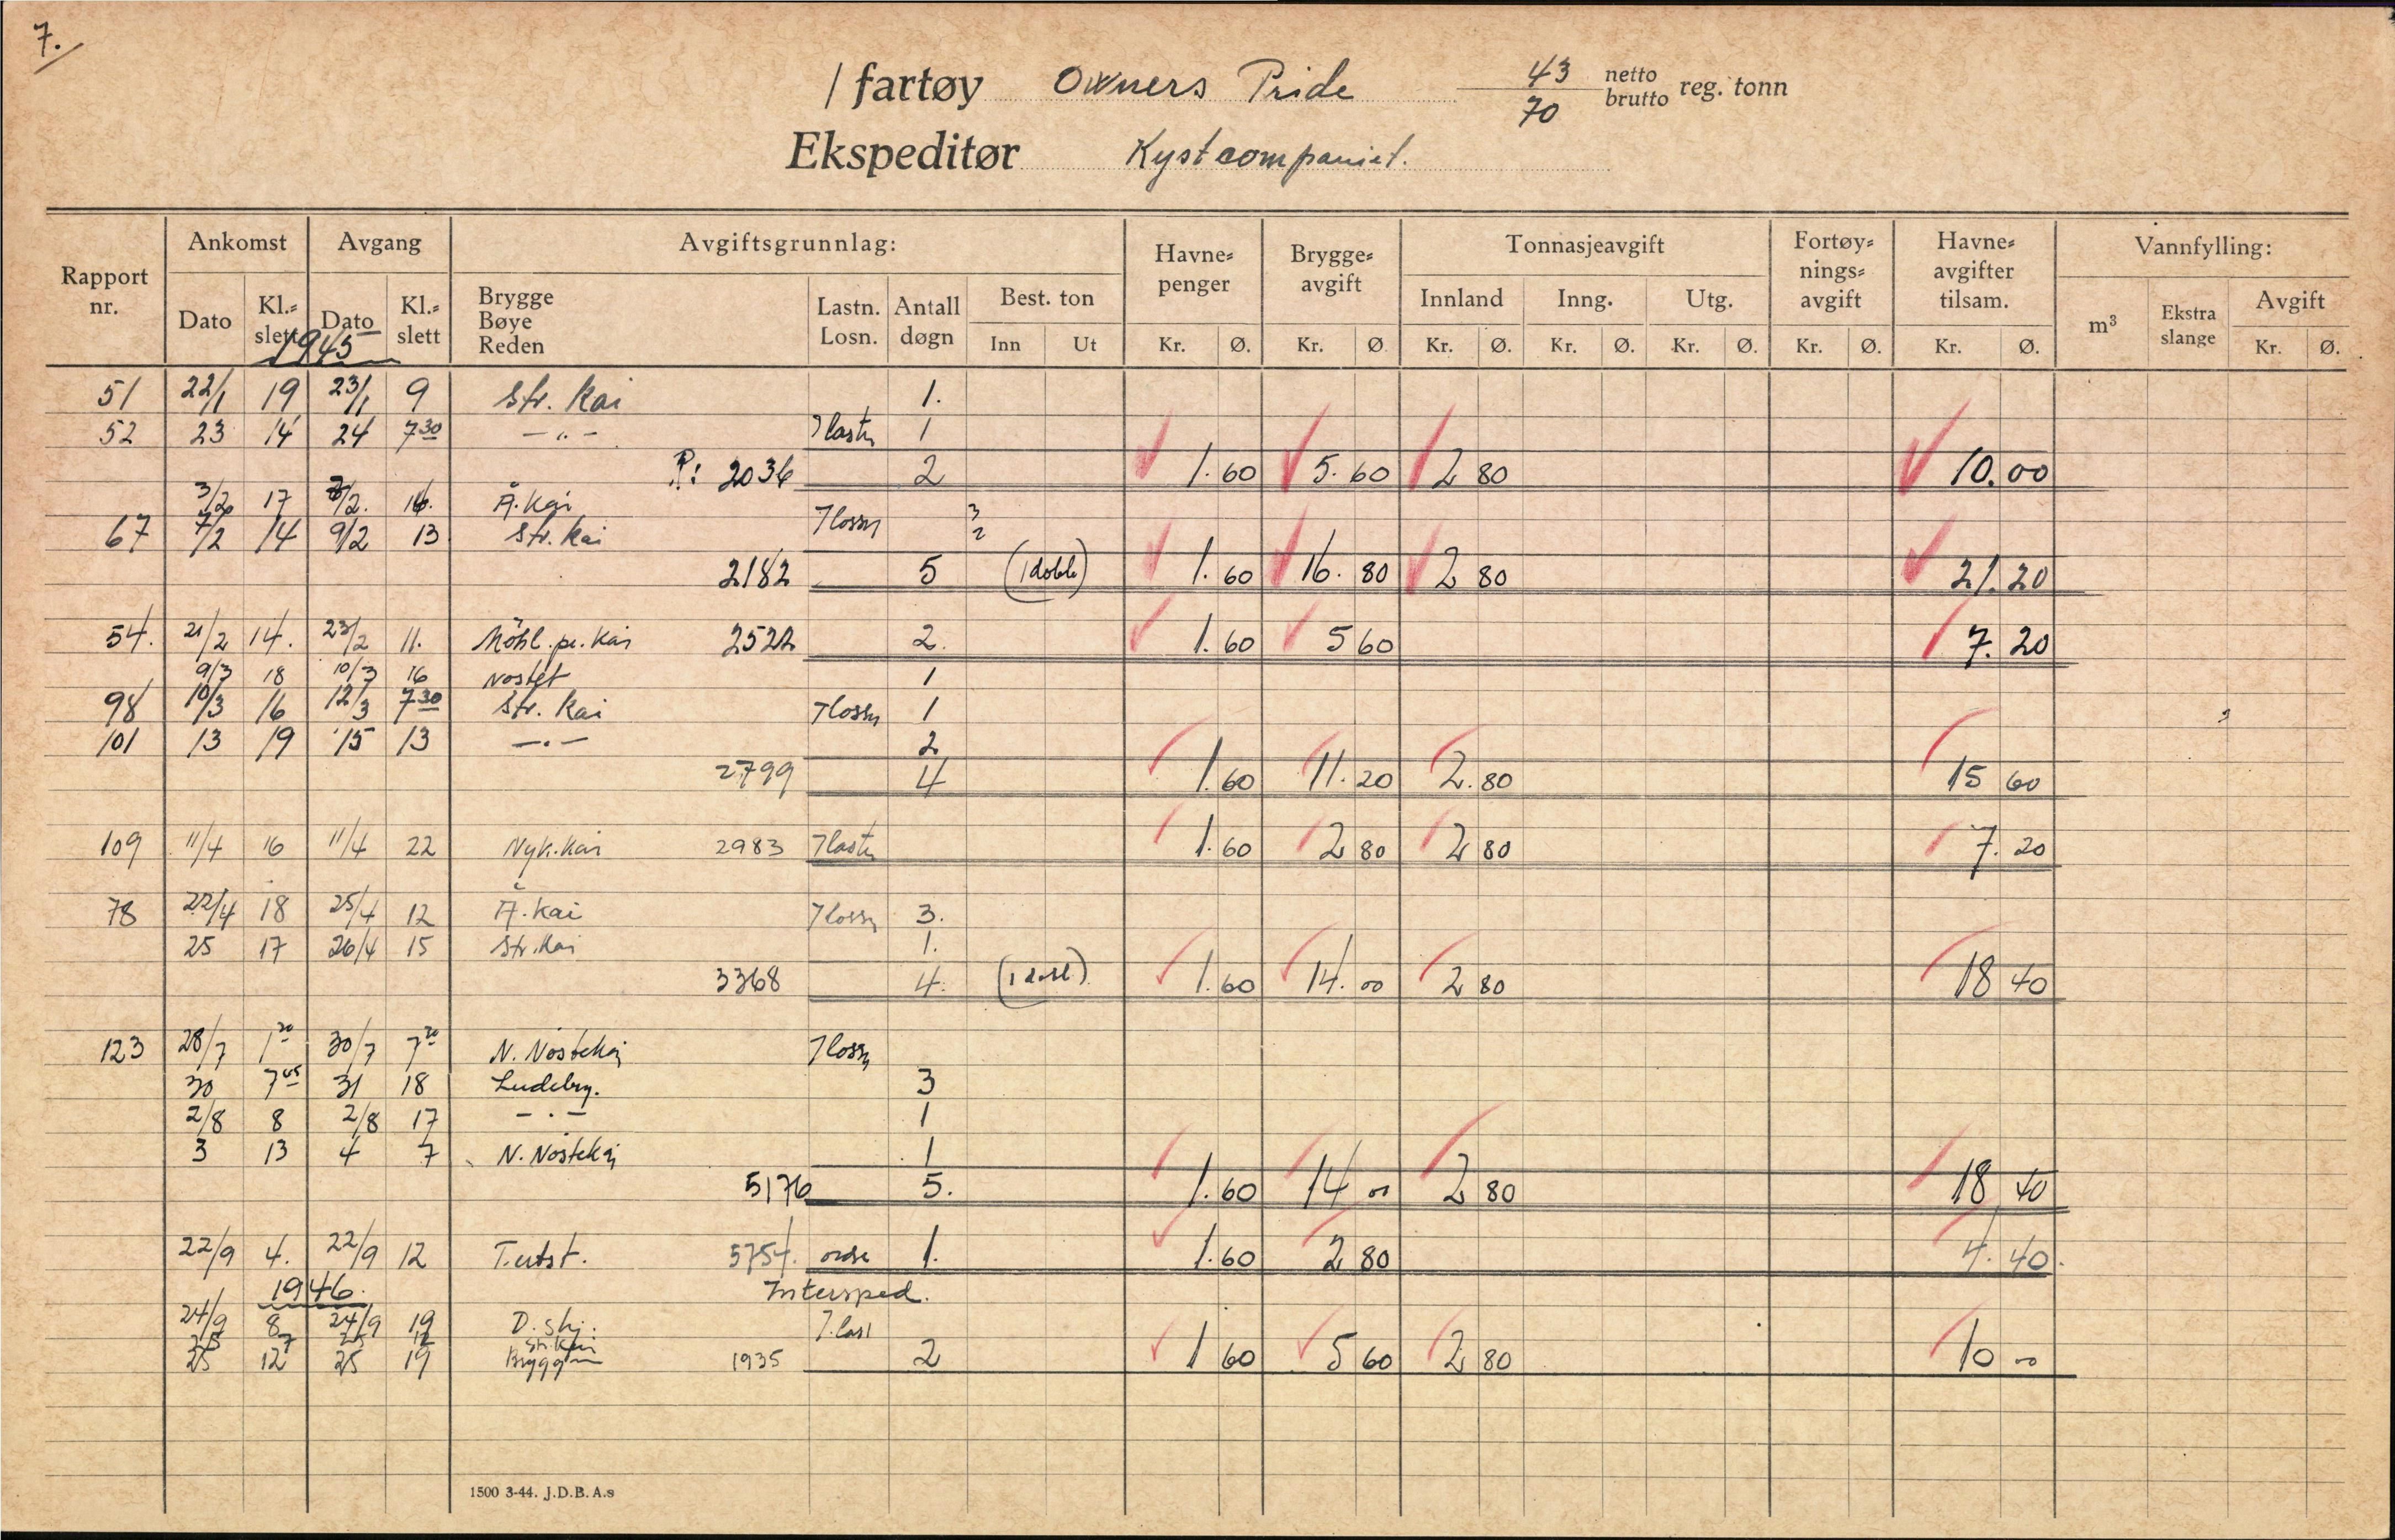 7.
/ fartøy Owners Pride 43 netto
70 brutto reg. tonn
Ekspeditør Kystcompaniet.
Rapport nr. Ankomst Avgang Avgiftsgrunnlag: Havne- penger Brygge- avgift Tonnasjeavgift Fortøy- nings- avgift Havne- avgifter tilsam. Vannfylling:
Dato Kl.- slett Dato Kl.- slett Brygge Bøye Reden Lastn. Losn. Antall døgn Best. ton Innland Inng. Utg. m³ Ekstra slange Avgift
Inn Ut Kr. Ø. Kr. Ø Kr. Ø. Kr. Ø. Kr. Ø. Kr. Ø. Kr. Ø. Kr. Ø.
1945
51 22/1 19 23/1 9 Str. Kai 1.
52 23 14 24 7 30 — " — lastn 1
P: 2036 2 1.60 5.60 2 80 10.00
3/2 17 /2. 16. Å. Kai 3
67 7/2 14 9/2 13 Str. Kai lossn 2
2182 5 (1 dobb) 1.60 16.80 2 80 21.20
54. 21/2 14. 23/2 11. Möhl. pr. Kai 2522 2. 1.60 5 60 7.20
9/3 18 10/3 16 Nostet 1
98 10/3 16 12/3 7 30 Str. Kai lossn 1
101 13 19 15 13 — " — 2
2799 4 1.60 11.20 2.80 15 60
109 11/4 16 11/4 22 Nyk. kai 2983 lastn 1.60 2 80 2 80 7.20
78 22/4 18 25/4 12 Å. Kai lossn 3.
25 17 26/4 15 Str. Kai 1.
3368 4. (1 dobl) 1.60 14.00 2 80 18 40
123 28/7 1 30/7 7 N. Nöstekai lossn
30 7 45 31 18 Ludebry. 3
2/8 8 2/8 17 — " — 1
3 13 4 7 N. Nöstekai 1
5176 5. 1.60 14 00 2 80 18 40
22/9 4. 22/9 12 T.utst. 5754. 1. 1.60 2 80 4.40.
1946. Intersped.
24/9 8 24/9 19 D. Skj. last
25 7 25 12 Str. Kai
25 12 25 19 Bryggen 1935 2 1 60 5 60 2 80 10 00
1500 3-44. J.D.B.A.s